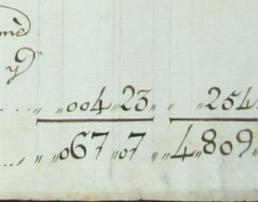 mè
y
... „ „004„23„ „ „254
..., „ „067„07 „„4„809„